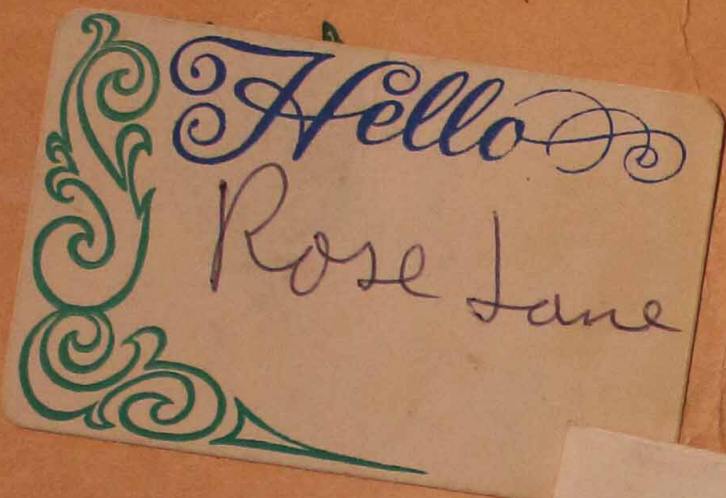 Hello
Rose Lane